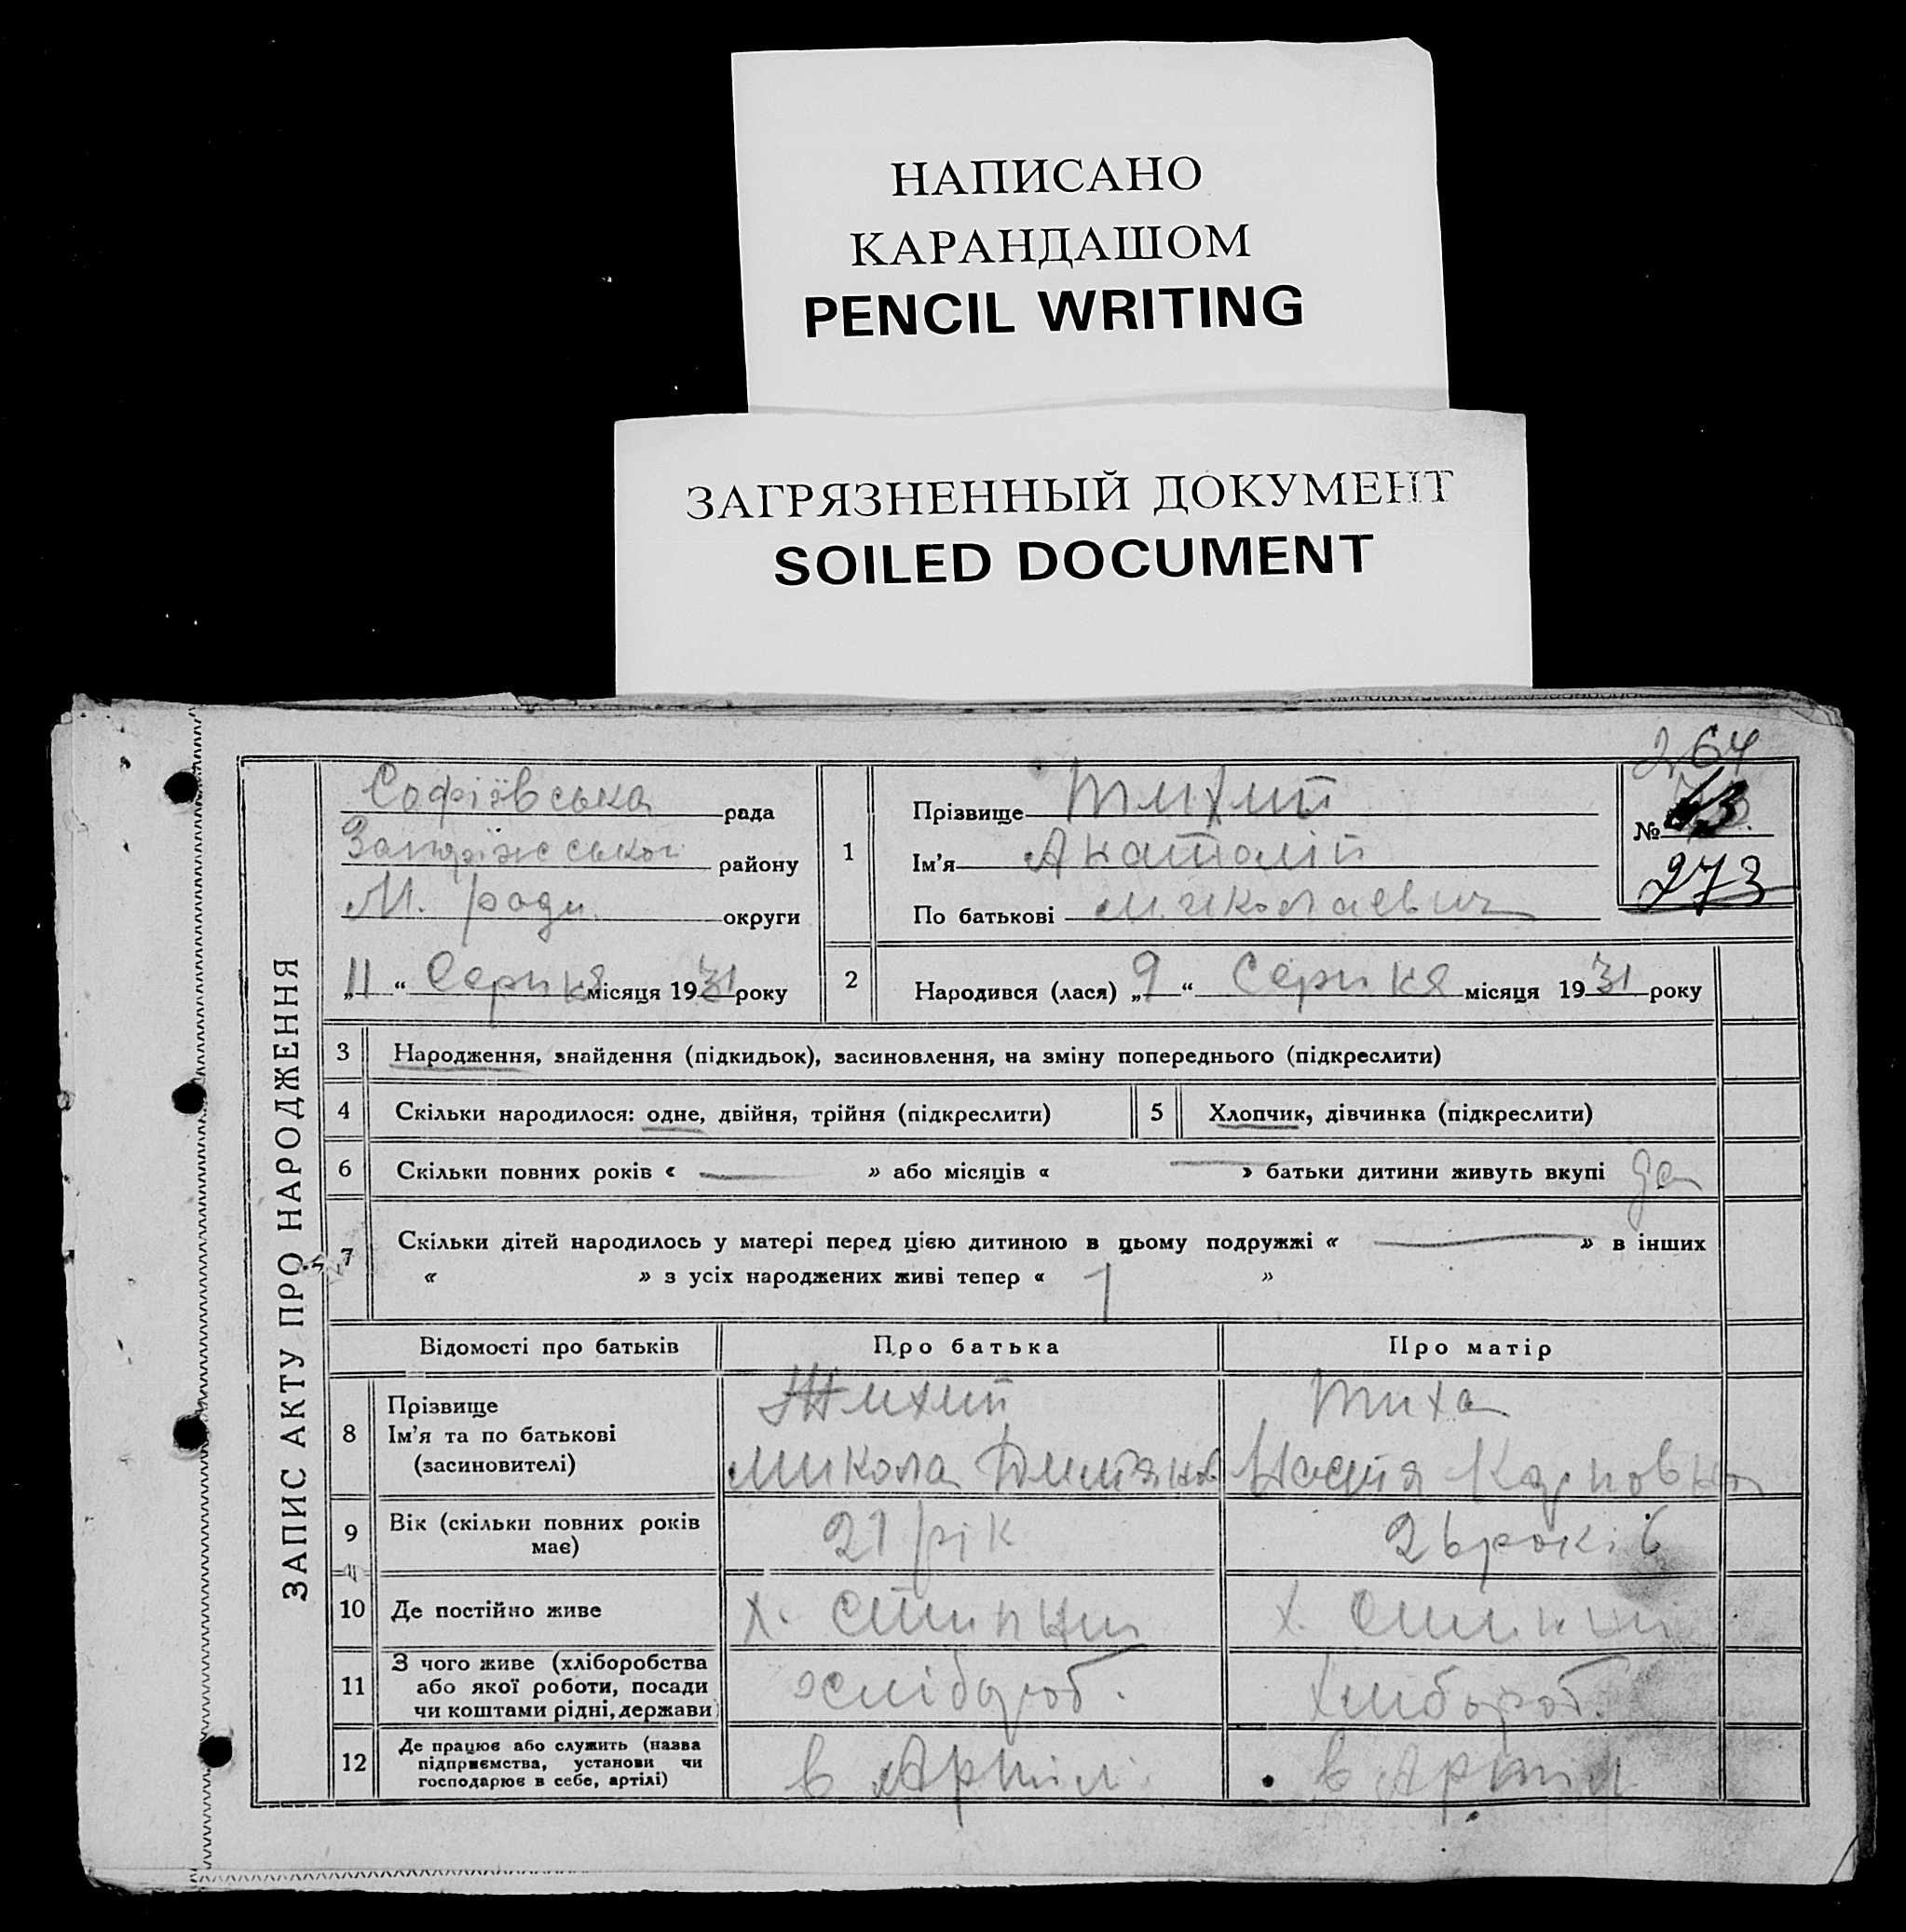 НАПИСАНО
КАРАНДАШОМ
PENCIL WRITING
ЗАГРЯЗНЕННЫЙ ДОКУМЕНТ
SOILED DOCUMENT
264
ЗАПИС АКТУ ПРО НАРОДЖЕННЯ
Софіївська рада
району
М. ради округи
„11“ Серпня місяця 1931 року
1
Прізвище Тихий
Ім'я Анатолій
По батькові Миколаевич
№
273
2 Народився (лася) „9“ Серпня місяця 1931 року
3 Народження, знайдення (підкидьок), засиновлення, на зміну попереднього (підкреслити)
4 Скільки народилося: одне, двійня, трійня (підкреслити)
5 Хлопчик, дівчинка (підкреслити)
6 Скільки повних років « — » або місяців « — » батьки дитини живуть вкупі да
7 Скільки дітей народилось у матері перед цією дитиною в цьому подружжі « — » в інших
« » з усіх народжених живі тепер « 1 »
Відомості про батьків Про батька Про матір
8 Прізвище
Ім'я та по батькові
(засиновителі)
Тихий
Микола
Тиха
Настя Карповна
9 Вік (скільки повних років
має)
21 рік
26 років
10 Де постійно живе
х.
х.
11 З чого живе (хліборобства
або якої роботи, посади
чи коштами рідні, держави)
хлібороб.
хлібороб.
12 Де працює або служить (назва
підприємства, установи чи
господарює в себе, артілі)
в Артілі
в Артілі